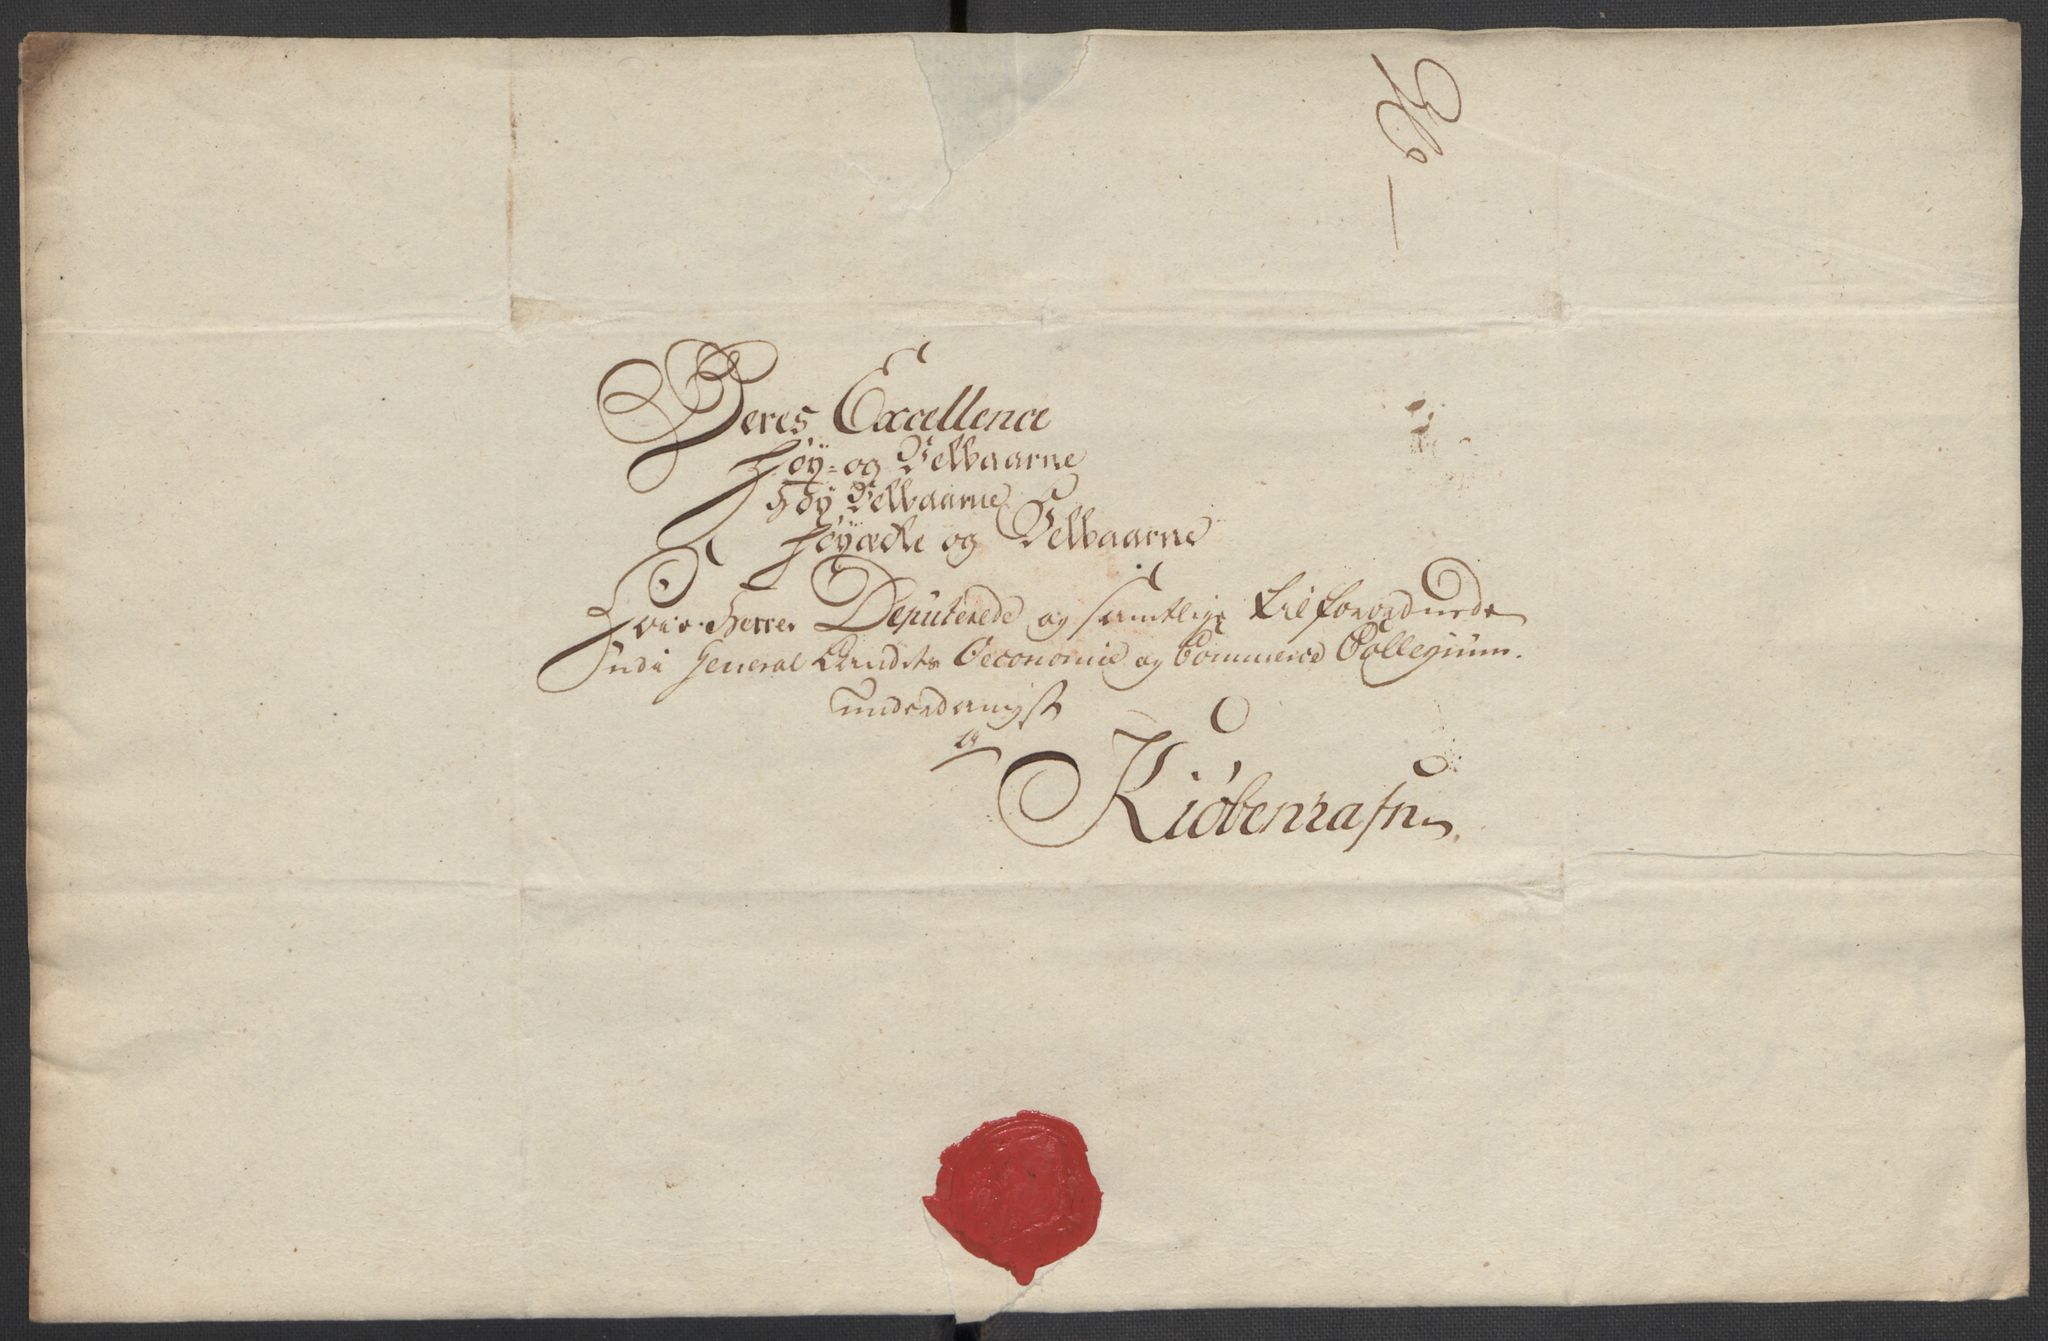 Deres Excellence
Høÿ- og Velbaarne
Høÿ Velbaarne
Høÿædle og Velbaarne
Herrer Deputerede og samtlige tilforordnede
Udi General Landets Oeconomie og Commerce Collegium.
underdanigst
a
Kiöbenhafn